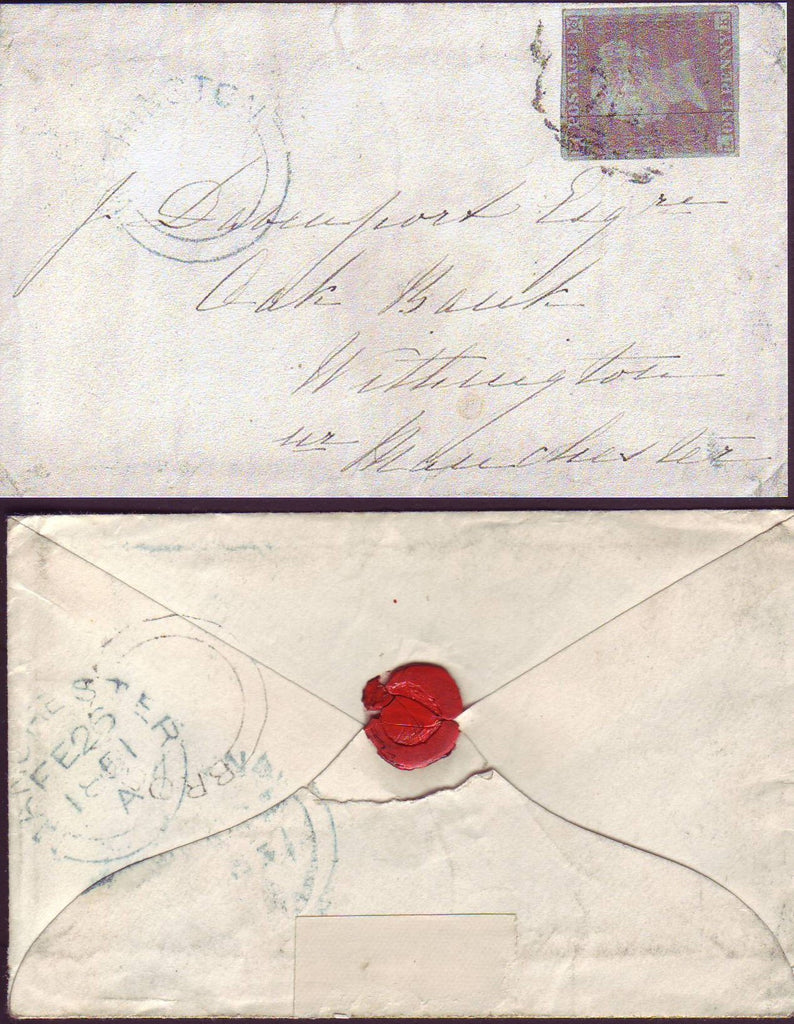 POSTAGE
ONE PENNY
HINGTON
J. Davenport Esqre
Oak Bank
Withington
nr Manchester
MANCHESTER
FE 25
1851
A
BRO